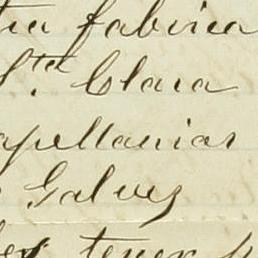 fabrica
Sta. Clara
apellanias
Galvez
tener